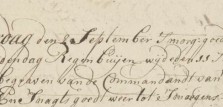 dag den 8 September Smorg: goed
gendag Regen buijen wijders
begraven van de Commandant van
Ene Snagts goedt weer tot Smorgens